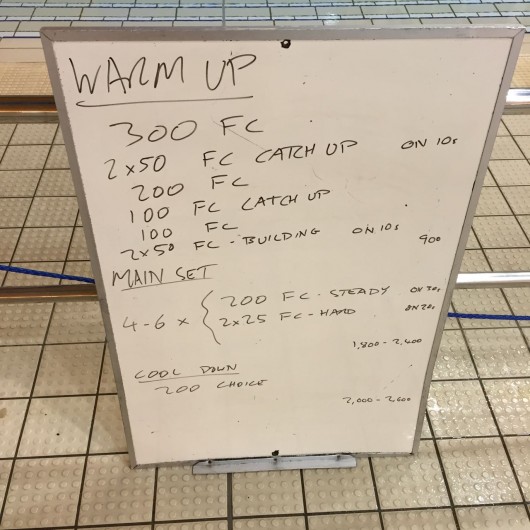 WARM UP
300 FC
2x50 FC CATCH UP ON 10s
200 FC
100 FC CATCH UP
100 FC
2x50 FC - BUILDING ON 10s
900
MAIN SET
4-6 x { 200 FC - STEADY ON 30s
2x25 FC - HARD ON 20s
1,800 - 2,400
COOL DOWN
200 CHOICE
2,000 - 2,600